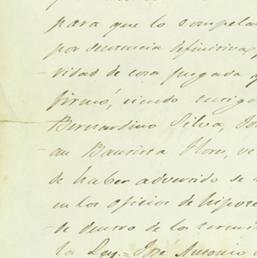 para que lo compelan
por sentencia definitiva,
vidad de cosa juzgada
firmó, siendo testigo
Bernardino Silva, Jo
an Bautista Flores, ve
de haber advertido se
en los oficios de hipote
se dentro de los termin
la Ley = José Antonio